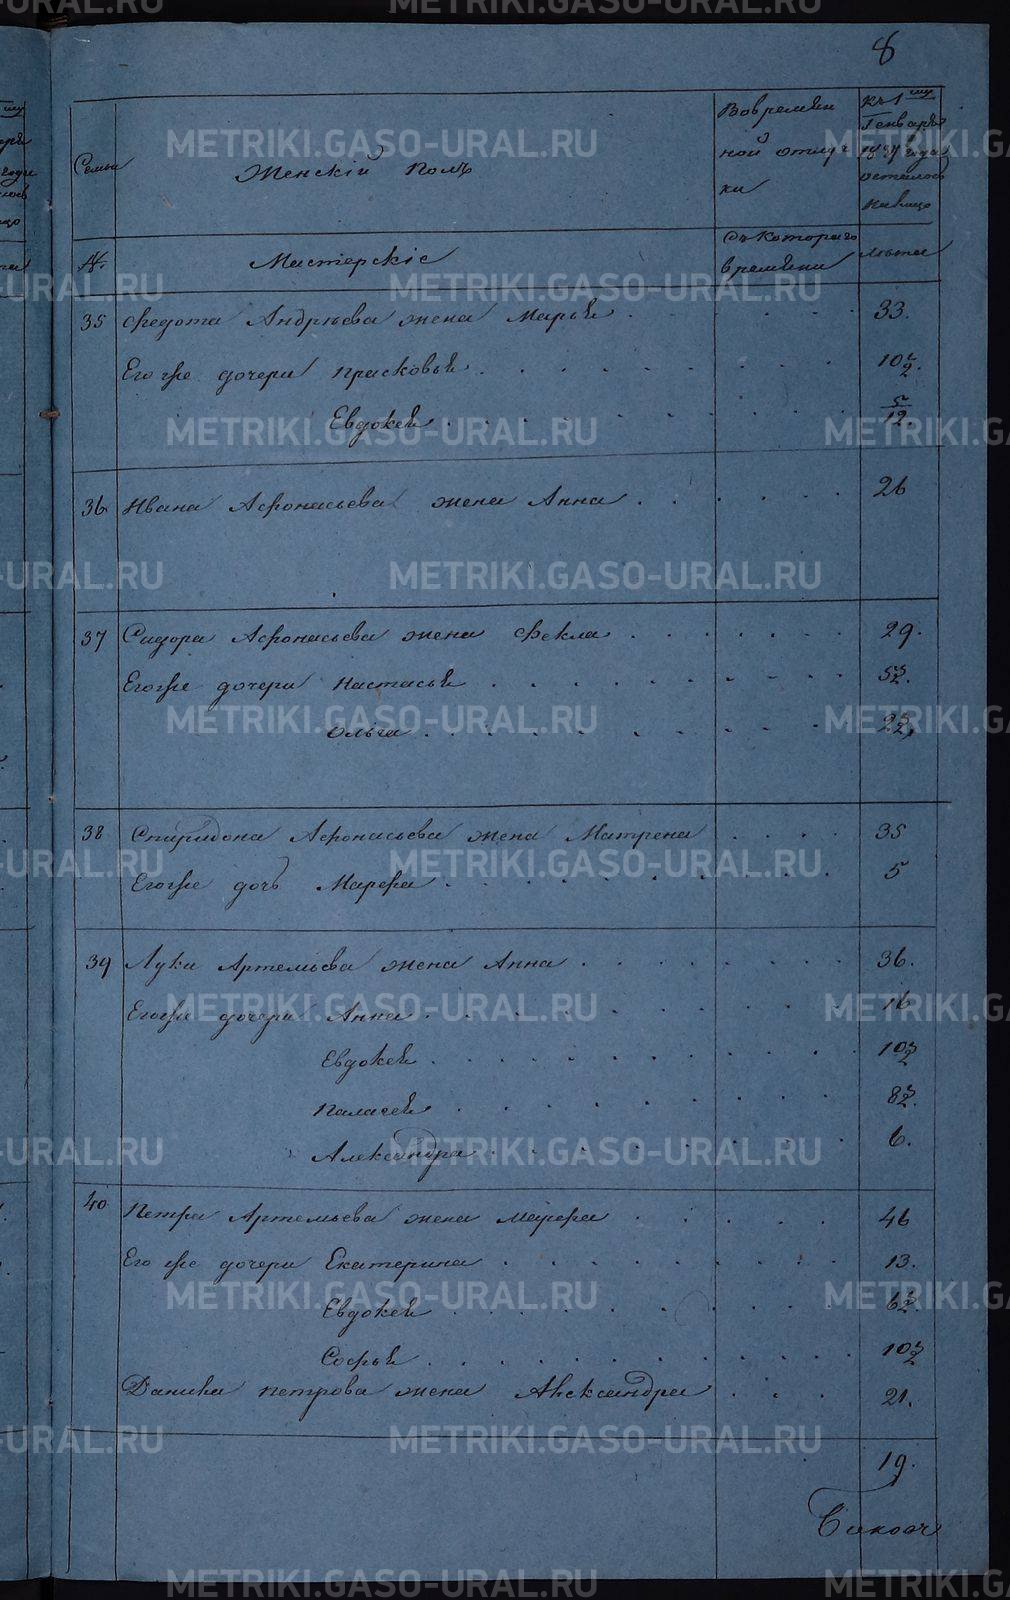 8
Семьи
Женскій полъ
Вовремян
ной отлуч
ки
Къ 1му
Генваря
года
осталось
налицо
№.
Мастерскіе
Съ Котораго
времяни
лѣта
35 Федота Андрѣева жена Марья 33.
Егоже дочери Прасковья 10½.
Евдокея 5/12.
36 Ивана Афонасьева жена Анна 26
37 Сидора Афонасьева жена Фекла 29.
Егоже дочери Настасья 5½.
Ольга 2½,
38 Спиридона Афонасьева жена Матрена 35
Егоже дочь Марфа 5
39 Луки Артемьева жена Анна 36.
Егоже дочери Анна 16
Евдокея 10½
Палагея 8½.
Александра 6.
40 Петра Артемьева жена Марфа 46
Егоже дочери Екатерина 13.
Евдокея 6½.
Софья 10½
Данила Петрова жена Александра 21.
19.
METRIKI.GASO-URAL.RU